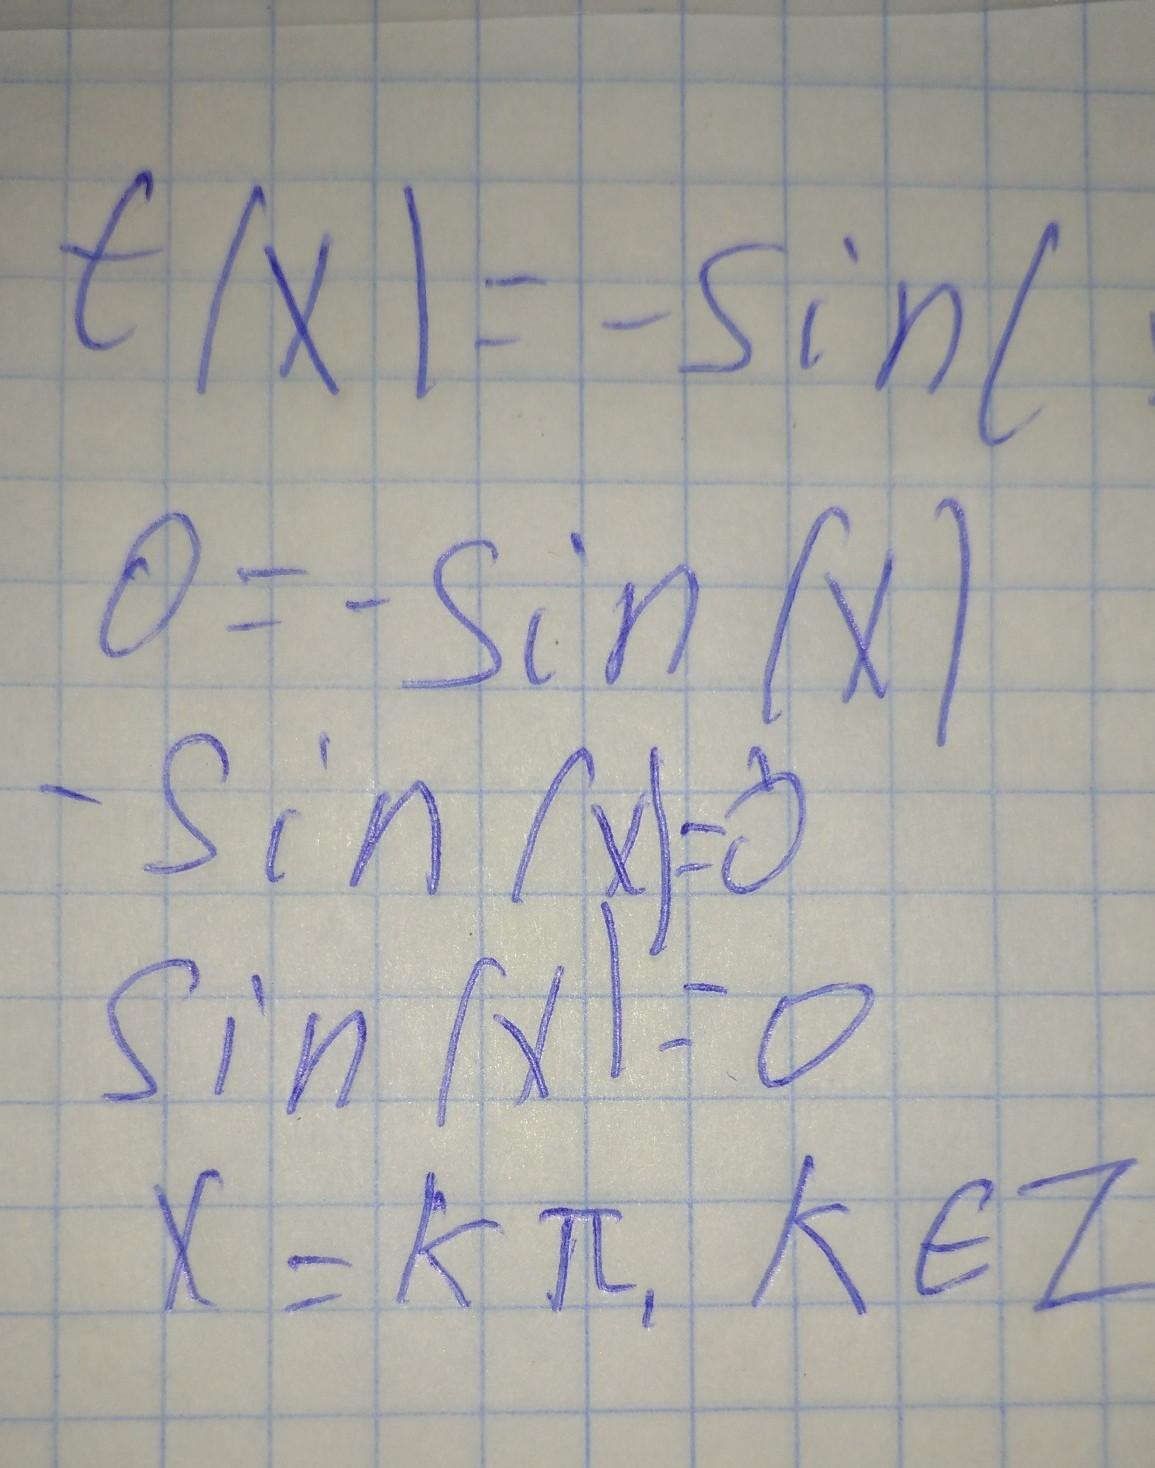 f(x)=-sin(
0=-sin(x)
-sin(x)=0
sin(x)=0
x=kπ, k∈Z